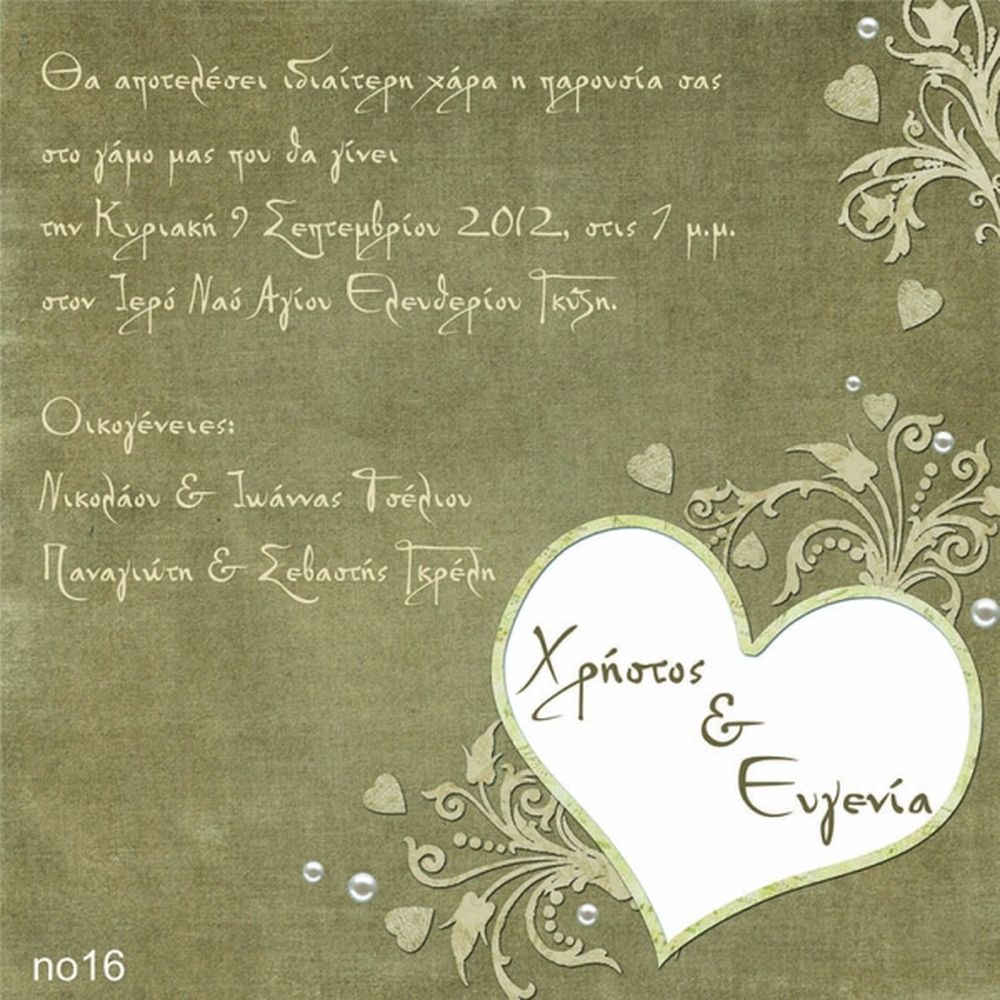 Θα αποτελέσει ιδιαίτερη χάρα η παρουσία σας
στο γάμο μας που θα γίνει
την Κυριακή 9 Σεπτεμβρίου 2012, στις 7 μ.μ.
στον Ιερό Ναό Αγίου Ελευθερίου Γκύζη.
Οικογένειες:
Νικολάου & Ιωάννας Τσέλιου
Παναγιώτη & Σεβαστής Γκρέλη
Χρήστος
&
Ευγενία
no16